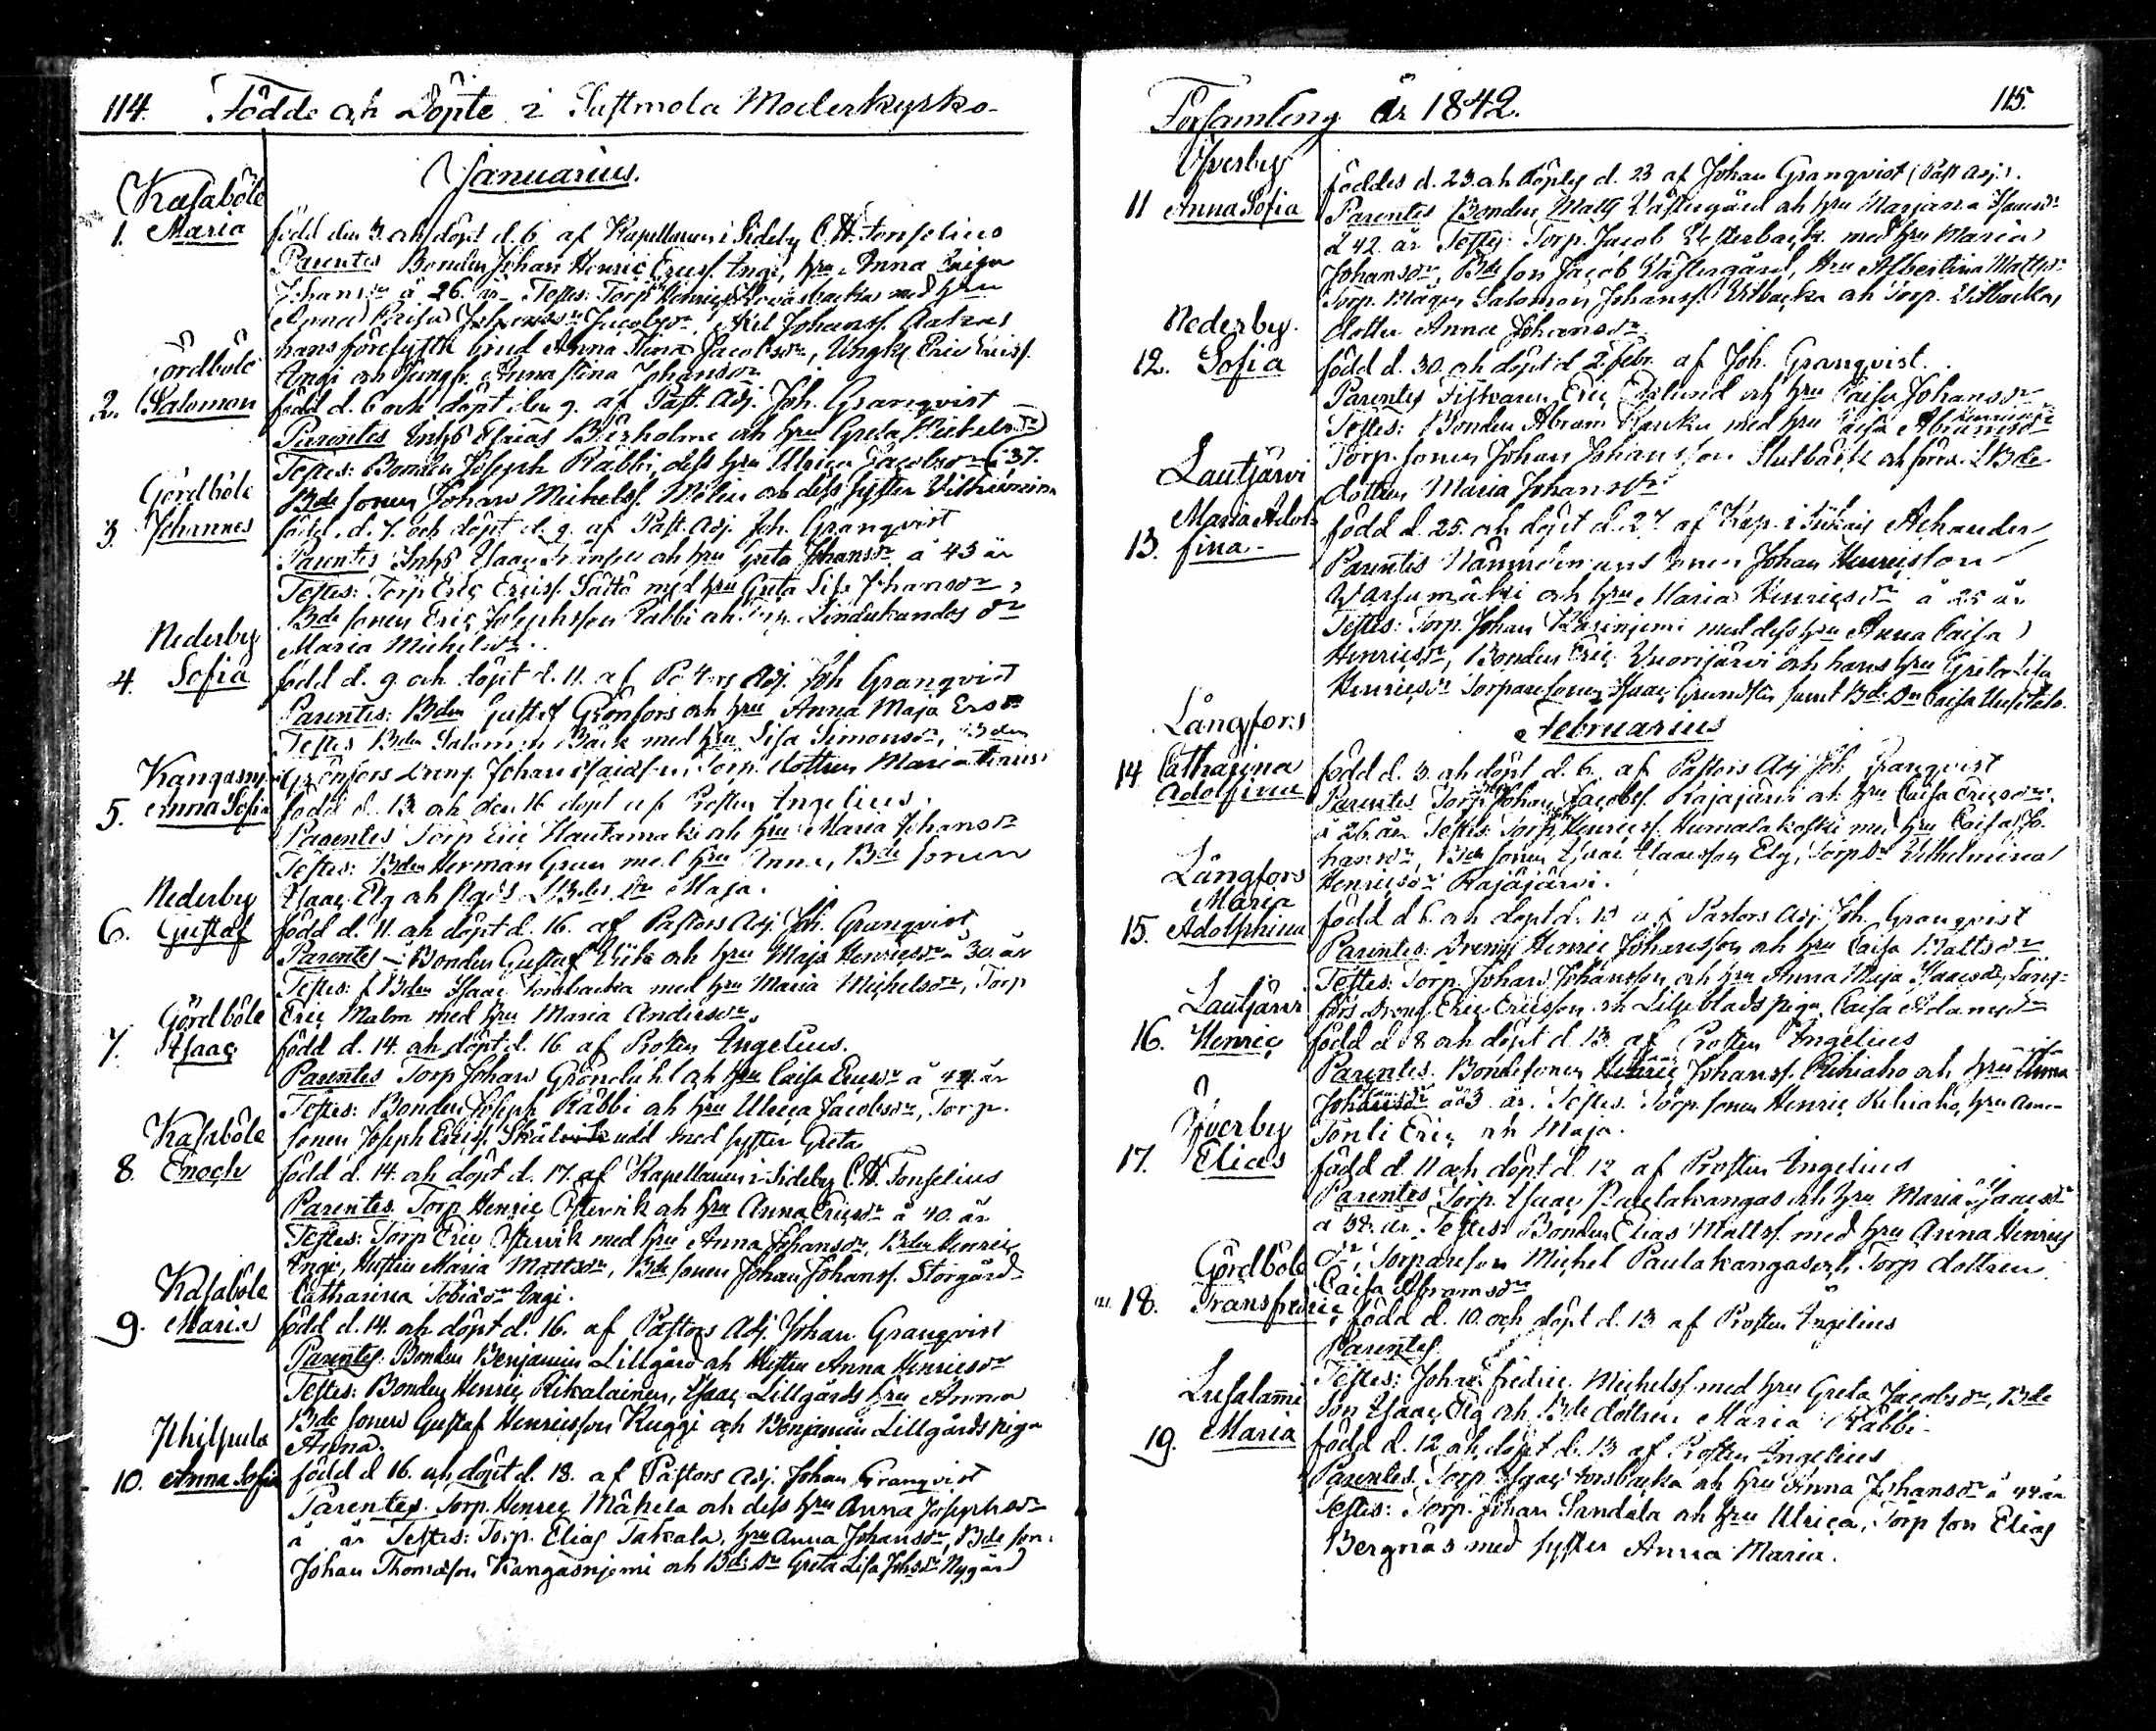 114. Födde och Döpte i Lappfjärds Moderkyrko-
Januarius.
Kasaböle
1. Maria född den 3. och döpt d. 6. af Kapellanen i Sideby C. H. Fonselius
Parentes Bonden Johan Henric Ericss. Engi, hru Anna Caisa
Johansdr à 26. år. Testes: Torp. Henric med hru
Anna Caisa Jacobsdr, Johanss.
hans förefästtk brud Anna Stina Jacobsdr, Ungk. Eric Ericss.
Engi och Jungfr. Anna Stina Johansdr
Gördböle
2. Salomon född d. 6 och döpt den 9. af Past. Adj. Joh. Granqvist
Parentes Inhs Esaias Björholm och hru Greta Michelsdr
Testes: Bonden Joseph Räbbi, dess hru Ulrica Jacobsdr à 37.
Bde sonen Johan Michelss. Melin och dess syster Vilhelmina
Gördböle
3. Johannes född d. 7. och döpt d. 9. af Past. Adj. Joh. Granqvist
Parentes Inhs Isaac och hru Greta Johansdr à 43 år
Testes: Torp Eric Ericss. Sättö med hru Greta Lisa Johansdr,
Bde sonen Eric Josephsson Räbbi och Torp. Lindukandos dr
Maria Michelsdr.
Nederby
4. Sofia född d. 9. och döpt d. 11. af Pastors Adj. Joh Granqvist
Parentes: Bden Gustaf Grönfors och hru Anna Maja Ersdr
Testes Bden Salomon Bäck med hru Lisa Simonsdr, Bden
Grönfors dreng Johan Isaacson, Torp. dottren Maria
Kangasny.
5. Anna Sofia född d. 13. och den 16 döpt af Prosten Angelius.
Parentes Torp Eric Hautamäki och hru Maria Johansdr
Testes: Bden Herman Gren med hru Anna, Bde sonen
Isaac Elg och Bdes dr Maja.
Nederby
6. Gustaf född d. 11. och döpt d. 16. af Pastors Adj. Joh. Granqvist
Parentes Bonden Gustaf och hru Maja Henricsdr à 30. år
Testes: Bden Isaac Torsbacka med hru Maria Michelsdr, Torp
Eric Malm med hru Maria Andersdr.
Gördböle
7. Isaac född d. 14. och döpt d. 16 af Prosten Angelius.
Parentes Torp Johan Gröndahl och hru Caisa Ericsdr à 44. år
Testes: Bonden Joseph Räbbi och hru Ulrica Jacobsdr, Torp.
sonen Joseph Ericss. udd med syster Greta
Kasaböle
8. Enoch född d. 14. och döpt d. 17. af Kapellanen i Sideby C. H. Fonselius
Parentes. Torp Henric Östervik och hru Anna Ericsdr à 40. år
Testes: Torp Eric Östervik med hru Anna Johansdr, Bden Henric
Engi, Hustru Maria Mattsdr, Bde sonen Johan Johanss. Storgård
Catharina Tobiasdr Engi.
Kasaböle
9. Maria född d. 14. och döpt d. 16. af Pastors Adj. Johan Granqvist
Parentes: Bonden Benjamin Lillgård och Hustru Anna Henricsdr
Testes: Bonden Henric Rikalainen, Isaac Lillgårds hru Anna
Bde sonen Gustaf Henricsson Kuggi och Benjamin Lillgårds piga
Anna.
10. Anna Sofia född d 16. och döpt d. 18. af Pastors Adj. Johan Granqvist
Parentes. Torp. Henric Mäkelä och dess hru Anna Josephsdr
à år Testes: Torp. Elias Takala, hru Anna Johansdr, Bde son:
Johan Thomasson Kangasnjemi och Bds Dr Greta Lisa Johsdr Nygård
Församling År 1842. 115.
Öfverby
11 Anna Sofia föddes d. 23. och döptes d. 23 af Johan Granqvist (Past Adj.).
Parentes Bonden Matts Västergård och hru Marjana Hansdr
à 42 år Testes: Torp. Jacob Vesterback med hru Maria
Johansdr, Bde son Jacob Västergård, Hru Albertina Mattsdr
Torp. Mågen Salomon Johanss. Vitbacka och Torp. Vitbackas
dotter Anna Johansdr
Nederby.
12. Sofia född d. 30. och döpt d 2 Febr. af Joh. Granqvist.
Parentes Fiskaren Eric Östlund och hru Caisa Johansdr
Testes: Bonden Abram med hru Caisa Abramsdr
Torp. sonen Johan Johansson och
dottren Maria Johansdr
Lautjärvi
13. Maria Adolfina född d. 25. och döpt d. 27 af Kap. i Achander
Parentes Nämndemans sonen Johan Henricsson
Warsamäki och hru Maria Henricsdr à 25 år
Testes: Torp. Johan Karinjemi med dess hru Anna Caisa
Henricsdr, Bonden Eric Vuorijärvi och hans hru Greta Lisa
Henricsdr Torparesonen Isaac samt Bds Dr Caisa Uusitalo.
Februarius
Långfors
14 Catharina Adolfina född d. 3. och döpt d. 6. af Pastors Adj Joh. Granqvist
Parentes Torp. Johan Jacobss. Rajajärvi och hru Caisa Ericsdr.
à 26 år Testes: Torp. Henricss. Humalakoski med hru Caisa Jo-
hansdr, Bde sonen Isaac Isaacsson Elg, Torp dr Vilhelmina
Henricsdr Rajajärvi.
Långfors
15. Maria Adolphina född d 6. och döpt d. 13 af Pastors Adj. Joh. Granqvist
Parentes: Dreng Henric Johansson och hru Caisa Mattsdr
Testes: Torp. Johan Johansson och hru Anna Maja Isaacsdr, Lång-
fors dreng Eric Ericsson och Liljeblads piga Caisa Adamsdr
Lautjärvi
16. Henric född d. 8 och döpt d. 13. af Prosten Angelius
Parentes. Bondesonen Johanss. Rihiaho och hru Anna
Johansdr à 23 år. Testes. Torp. sonen Henric Rihiaho, hru Anna
Tonli Eric och Maja.
Öfverby
17. Elias född d. 11 och döpt d. 12 af Prosten Angelius
Parentes Torp. Isaac Paulakangas och hru Maria Isaacsdr
à 38. år. Testes: Bonden Elias Mattss. med hru Anna Henrics
dr, Torpareson Michel Paulakangas och Torp dottren
Caisa Abramsdr
Gördböle
18. Fransfredric född d. 10. och döpt d. 13 af Prosten Angelius
Parentes.
Testes: Johan fredric Michelss. med hru Greta Jacobsdr, Bde
son Isaac Elg och Bde dottren Maria Räbbi.
19. Maria född d. 12 och döpt d. 13 af Prosten Angelius
Parentes. Torp Isaac Torsbacka och hru Anna Johansdr à 44 år
Testes: Torp. Johan Sandala och hru Ulrica, Torp son Elias
Bergnäs med syster Anna Maria.